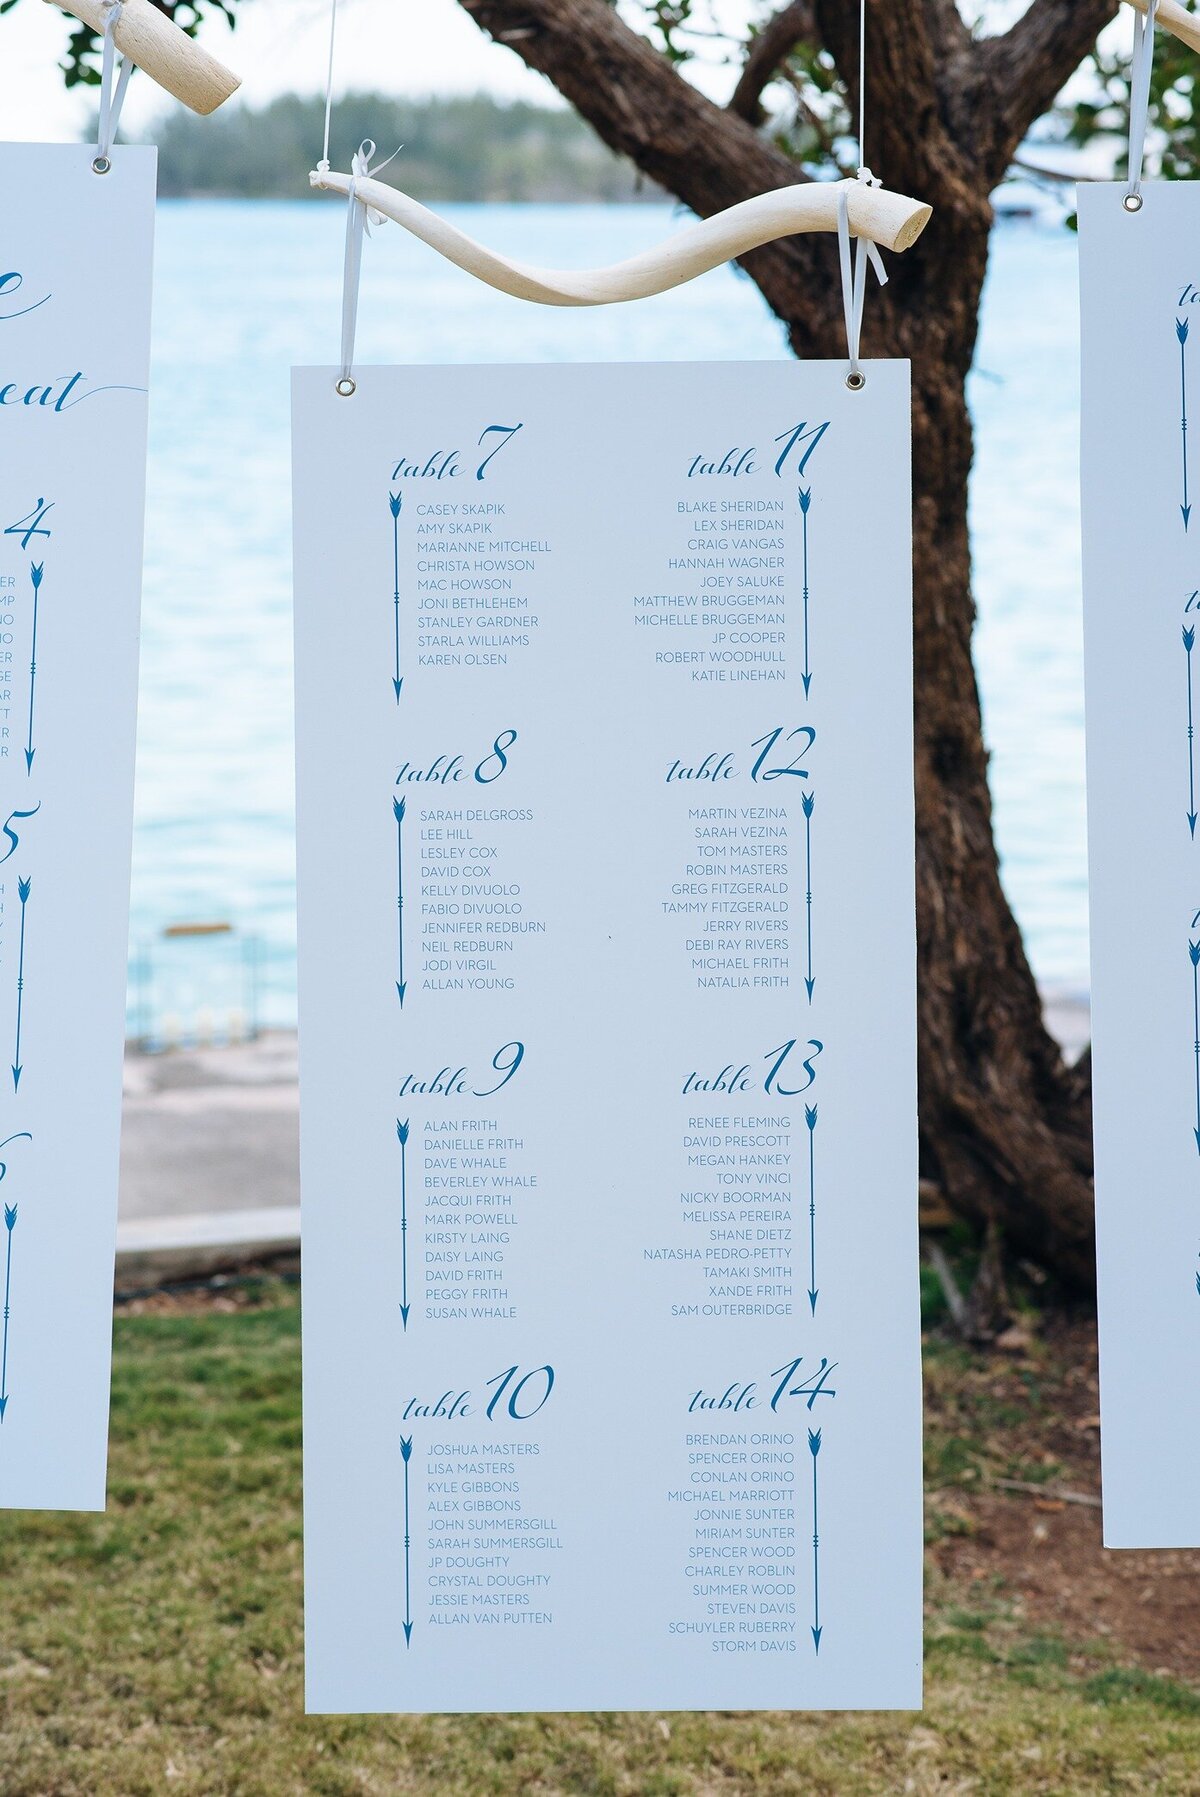 eat
4
5
6
table 7
CASEY SKAPIK
AMY SKAPIK
MARIANNE MITCHELL
CHRISTA HOWSON
MAC HOWSON
JONI BETHLEHEM
STANLEY GARDNER
STARLA WILLIAMS
KAREN OLSEN
table 8
SARAH DELGROSS
LEE HILL
LESLEY COX
DAVID COX
KELLY DIVUOLO
FABIO DIVUOLO
JENNIFER REDBURN
NEIL REDBURN
JODI VIRGIL
ALLAN YOUNG
table 9
ALAN FRITH
DANIELLE FRITH
DAVE WHALE
BEVERLEY WHALE
JACQUI FRITH
MARK POWELL
KIRSTY LAING
DAISY LAING
DAVID FRITH
PEGGY FRITH
SUSAN WHALE
table 10
JOSHUA MASTERS
LISA MASTERS
KYLE GIBBONS
ALEX GIBBONS
JOHN SUMMERSGILL
SARAH SUMMERSGILL
JP DOUGHTY
CRYSTAL DOUGHTY
JESSIE MASTERS
ALLAN VAN PUTTEN
table 11
BLAKE SHERIDAN
LEX SHERIDAN
CRAIG VANGAS
HANNAH WAGNER
JOEY SALUKE
MATTHEW BRUGGEMAN
MICHELLE BRUGGEMAN
JP COOPER
ROBERT WOODHULL
KATIE LINEHAN
table 12
MARTIN VEZINA
SARAH VEZINA
TOM MASTERS
ROBIN MASTERS
GREG FITZGERALD
TAMMY FITZGERALD
JERRY RIVERS
DEBI RAY RIVERS
MICHAEL FRITH
NATALIA FRITH
table 13
RENEE FLEMING
DAVID PRESCOTT
MEGAN HANKEY
TONY VINCI
NICKY BOORMAN
MELISSA PEREIRA
SHANE DIETZ
NATASHA PEDRO-PETTY
TAMAKI SMITH
XANDE FRITH
SAM OUTERBRIDGE
table 14
BRENDAN ORINO
SPENCER ORINO
CONLAN ORINO
MICHAEL MARRIOTT
JONNIE SUNTER
MIRIAM SUNTER
SPENCER WOOD
CHARLEY ROBLIN
SUMMER WOOD
STEVEN DAVIS
SCHUYLER RUBERRY
STORM DAVIS